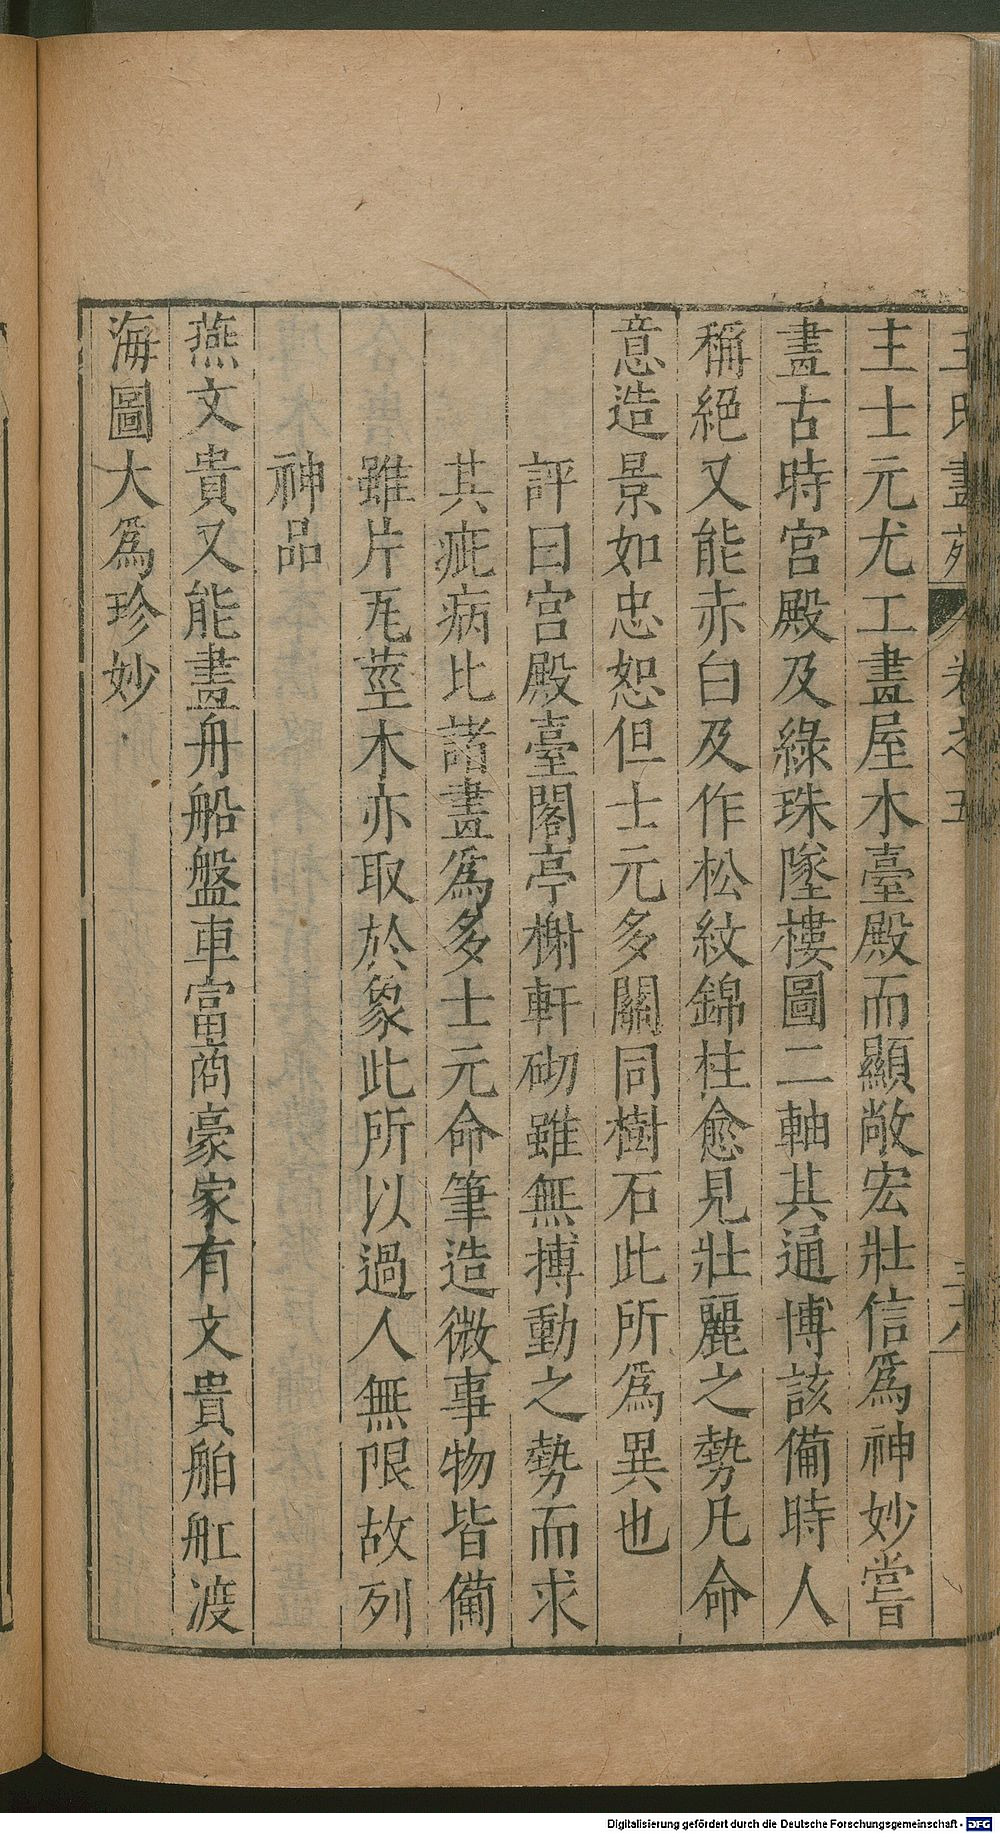 王氏畫苑 卷之五 三十八
王士元尤工畫屋木臺殿而顯敞宏壯信爲神妙嘗
畫古時宮殿及綠珠墜樓圖二軸其通博該備時人
稱絕又能赤白及作松紋錦柱愈見壯麗之勢凡命
意造景如忠恕但士元多關同樹石此所爲異也
評曰宮殿臺閣亭榭軒砌雖無搏動之勢而求
其疵病比諸畫爲多士元命筆造微事物皆備
雖片瓦莖木亦取於象此所以過人無限故列
神品
燕文貴又能畫舟船盤車富商豪家有文貴舶舡渡
海圖大爲珍妙
Digitalisierung gefördert durch die Deutsche Forschungsgemeinschaft - DFG